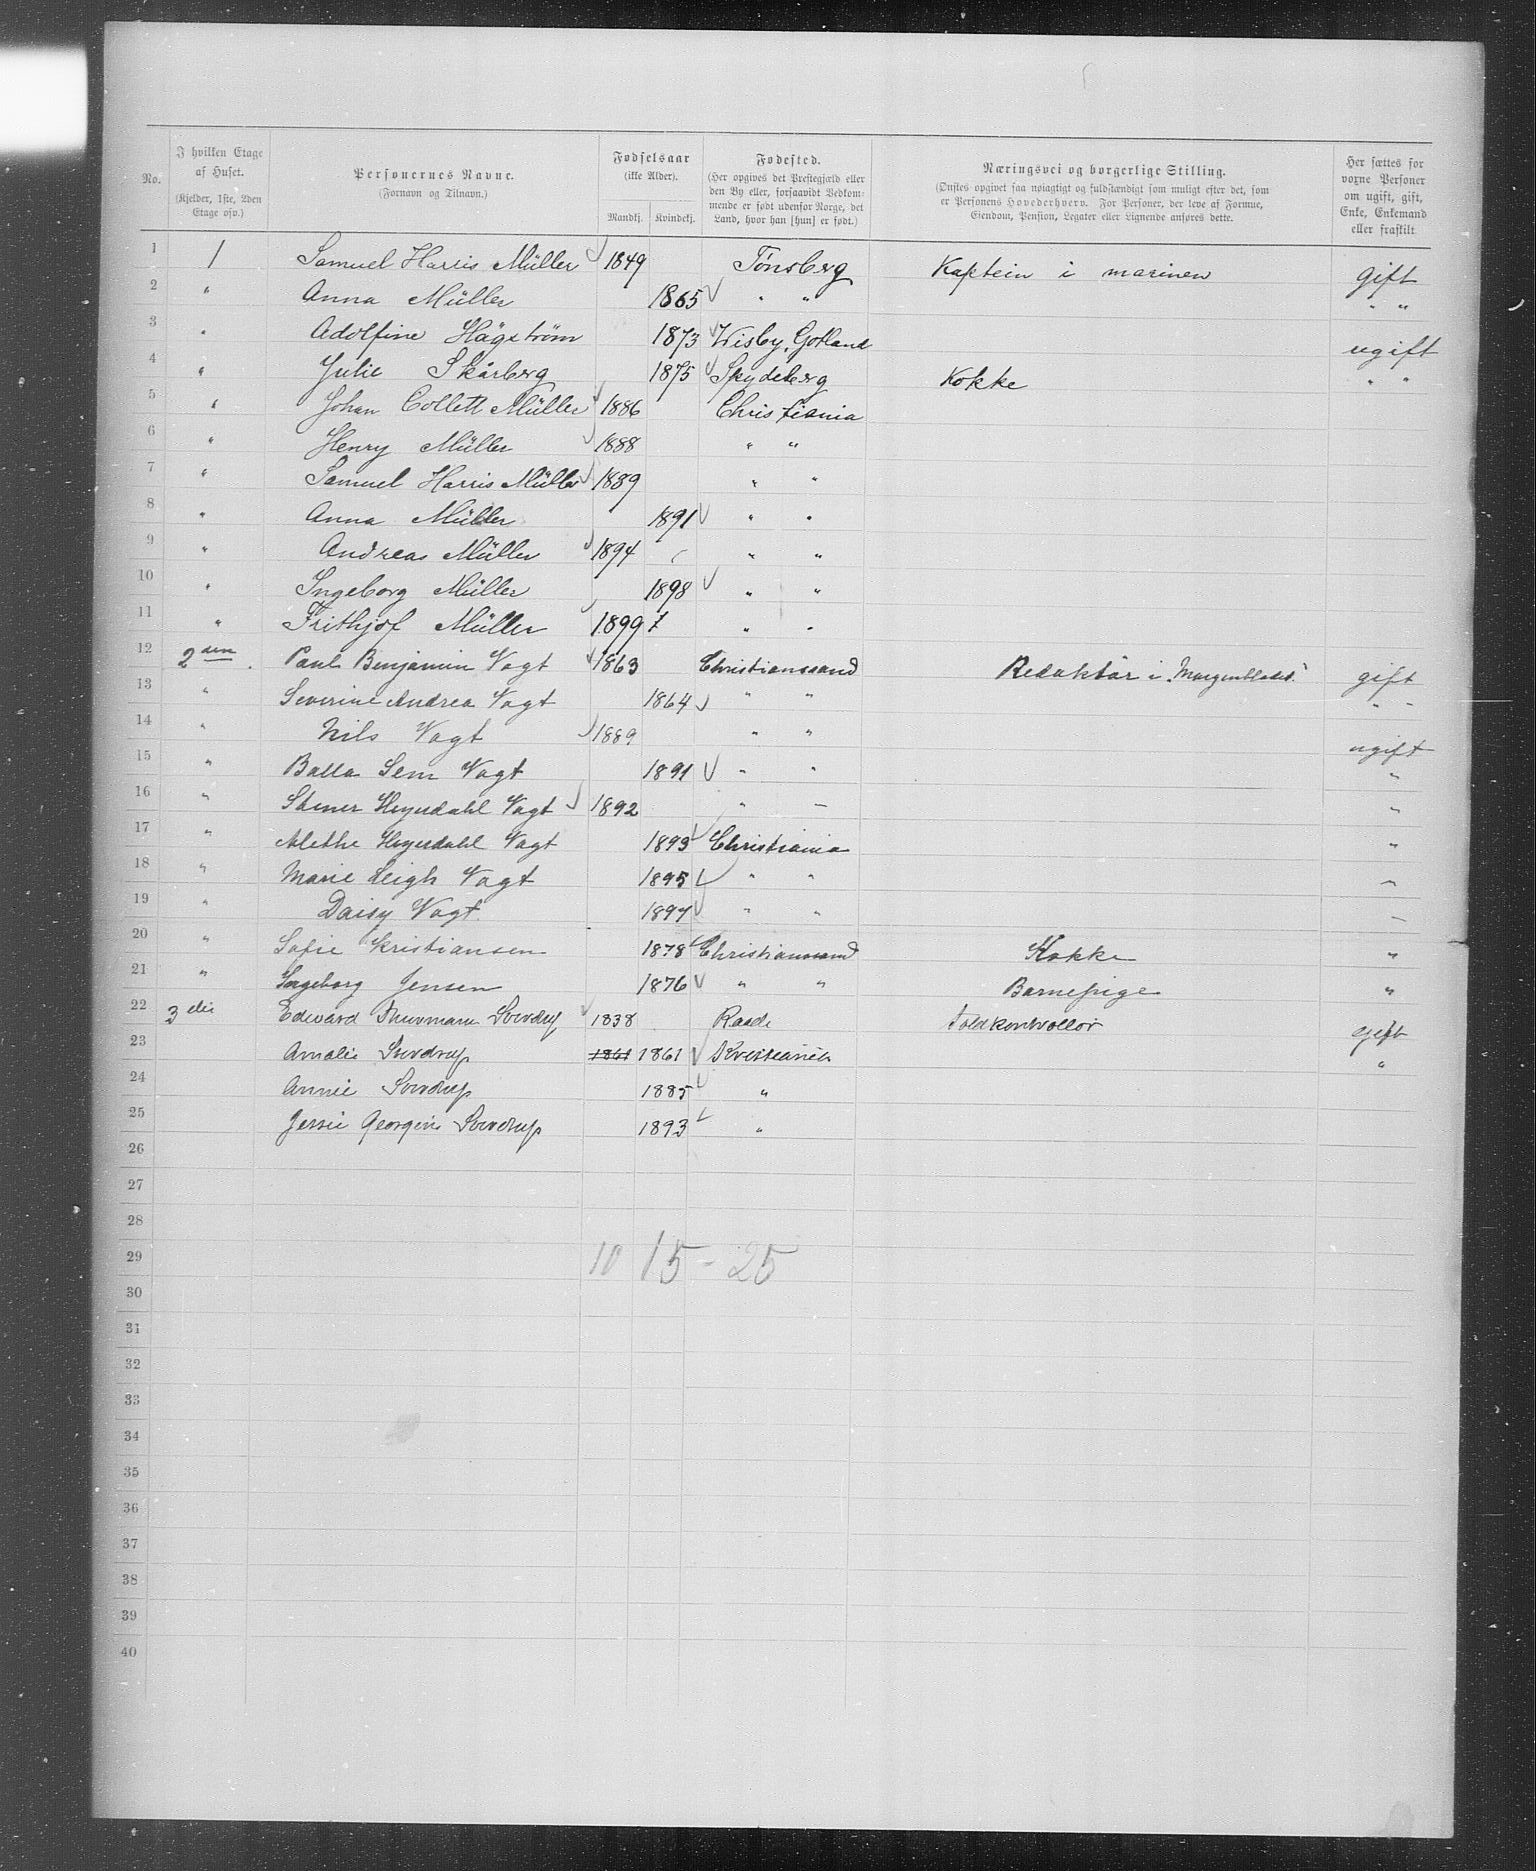 No. I hvilken Etage af Huset. (Kjelder, 1ste, 2den Etage osv.) Personernes Navne. (Fornavn og Tilnavn.) Fødselsaar (ikke Alder). Mandkj. Kvindekj. Fødested. (Her opgives det Prestegjæld eller den By eller, forsaavidt Vedkommende er født udenfor Norge, det Land, hvor han [hun] er født.) Næringsvei og borgerlige Stilling. (Ønskes opgivet saa nøiagtigt og fuldstændigt som muligt efter det, som er Personens Hovederhverv. For Personer, der leve af Formue, Eiendom, Pension, Legater eller Lignende anføres dette. Her sættes for voxne Personer om ugift, gift, Enke, Enkemand eller fraskilt
1 1 Samuel Harris Müller 1849 Tønsberg Kaptein i marinen gift
2 " Anna Müller 1865 " " " "
3 " Adolfine Hägström 1873 Wisby, Gotland ugift
4 " Julie Skårberg 1875 Spydeberg Kokke " "
5 " Johan Collett Müller 1886 Christiania
6 " Henry Müller 1888 " "
7 " Samuel Harris Müller 1889 " "
8 " Anna Müller 1891 " "
9 " Andreas Müller 1894 " "
10 " Ingeborg Müller 1898 " "
11 " Frithjof Müller 1899 " "
12 2den Paul Benjamin Vogt 1863 Christianssand Redaktør i "Morgenbladet." gift
13 " Severine Andrea Vogt 1864 " " " "
14 " Nils Vogt 1889 " " ugift
15 " Balla Sem Vogt 1891 " " "
16 " Stener Heyerdahl Vogt 1892 " " "
17 " Alethe Heyerdahl Vogt 1893 Christiania "
18 " Marie Leigh Vogt 1895 " " "
19 " Daisy Vogt. 1897 " " "
20 " Sofie Kristiansen 1878 Christianssand Kokke "
21 " Ingeborg Jensen 1876 " " Barnepige "
22 3die Edward Thurmann Sverdrup 1838 Raade Toldkontrollør gift
23 Amalie Sverdrup 1861 1861 Kristiania "
24 Annie Sverdrup 1885 "
25 Jessie Georgine Sverdrup 1893 "
26
27
28
29 10 15 - 25
30
31
32
33
34
35
36
37
38
39
40